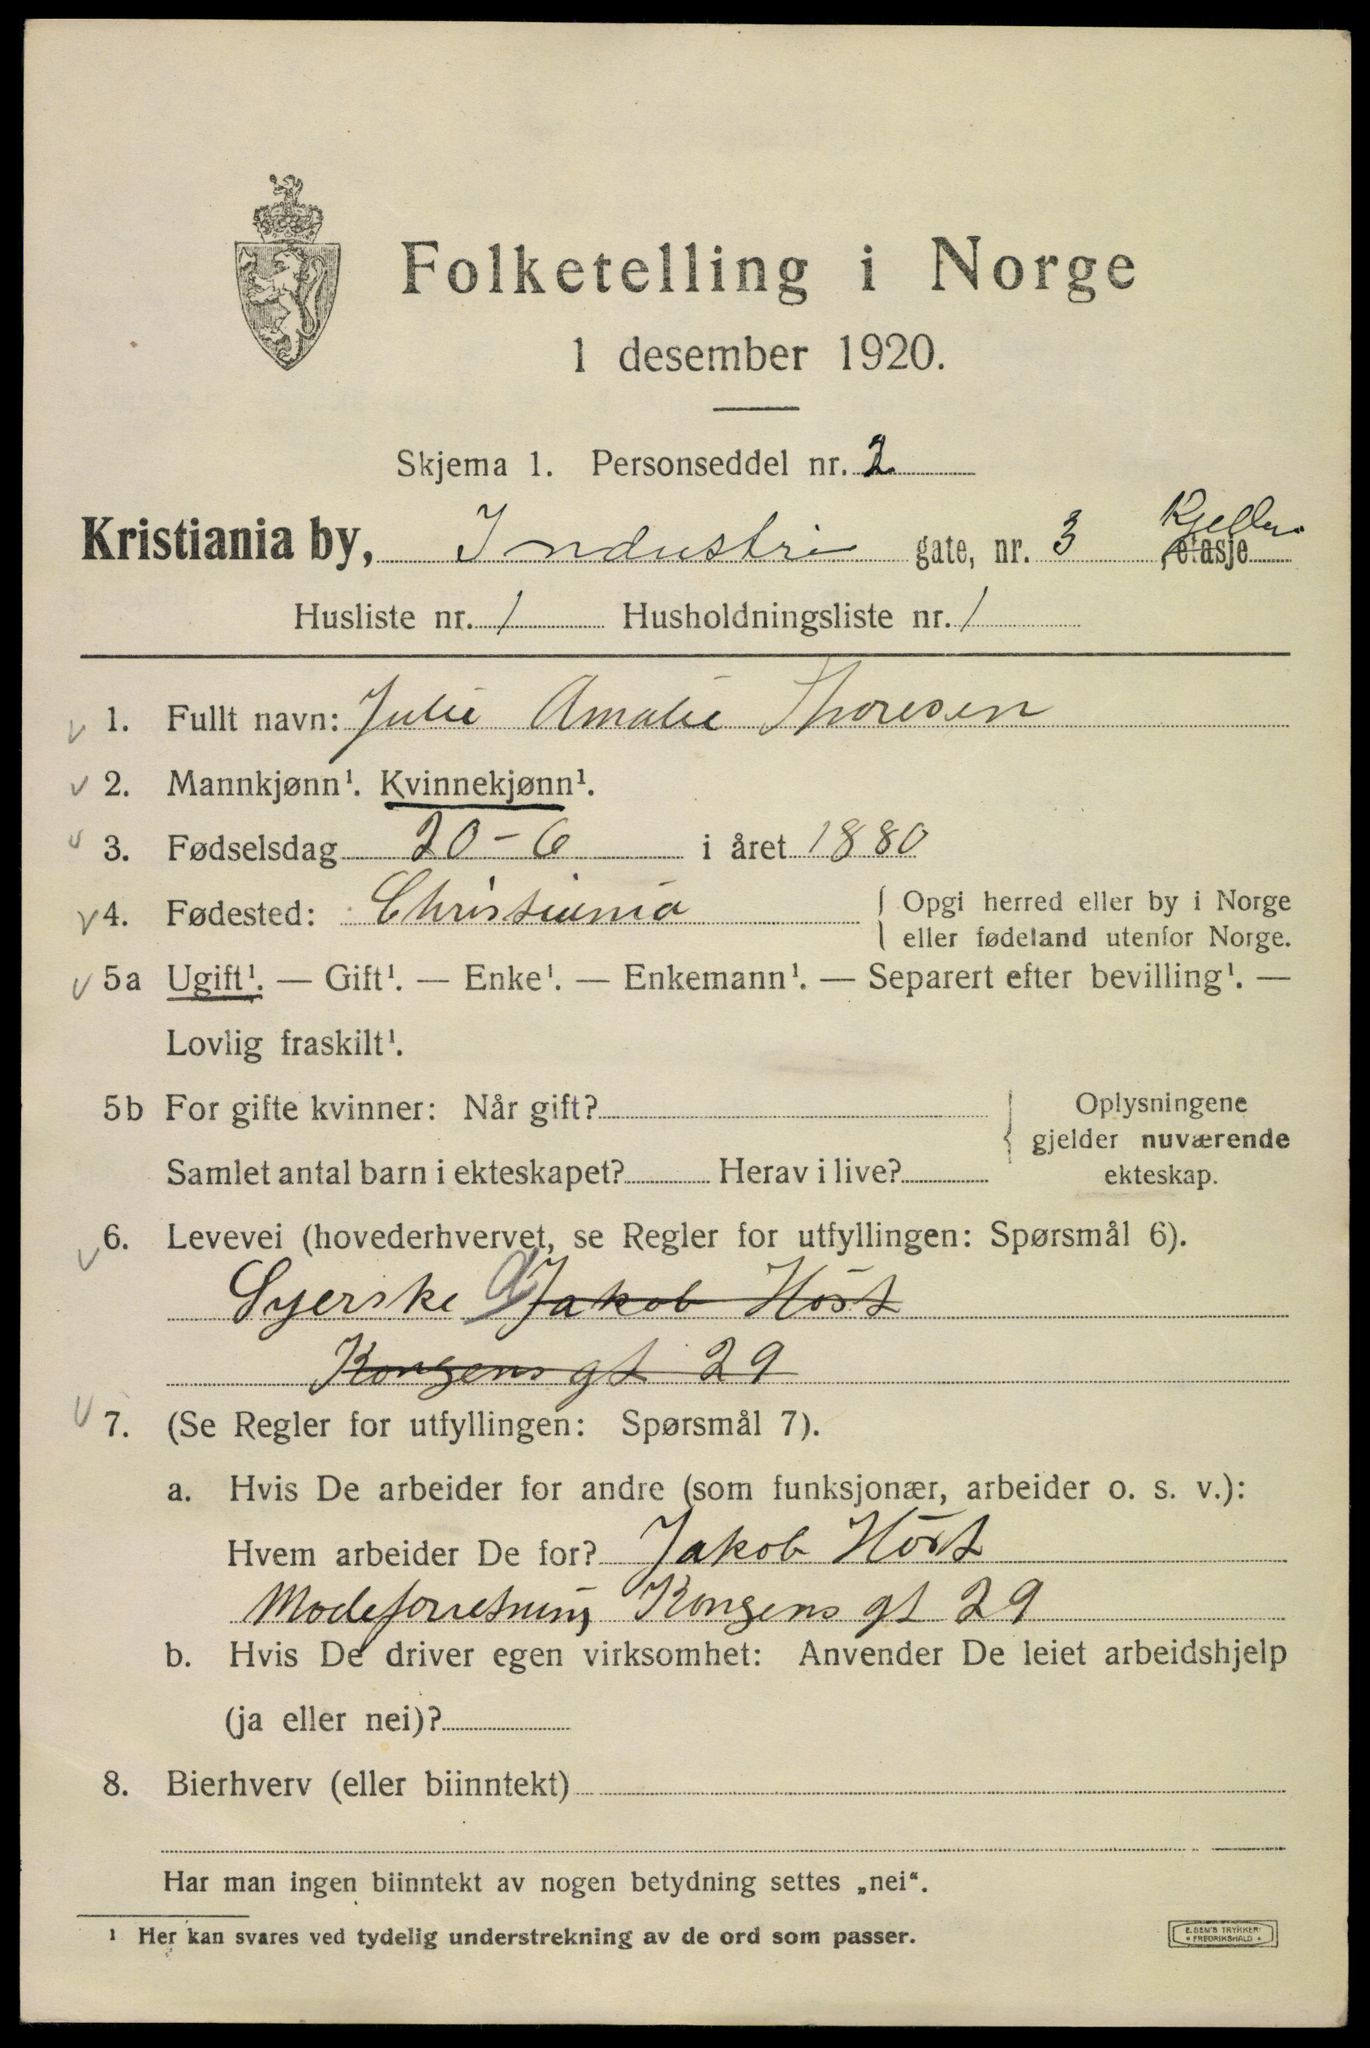 Folketelling i Norge
1 desember 1920.
Skjema 1. Personseddel nr. 2
Kristiania by, Industri gate, nr. 3 Kjeller, etasje
Husliste nr. 1 Husholdningsliste nr. 1
1. Fullt navn: Julie Amalie Thoresen
2. Mannkjønn¹. Kvinnekjønn¹.
3. Fødselsdag 20-6 i året 1880
4. Fødested: Christiania { Opgi herred eller by i Norge
eller fødeland utenfor Norge.
5a Ugift¹. — Gift¹. — Enke¹. — Enkemann¹. — Separert efter bevilling¹. —
Lovlig fraskilt¹.
5b For gifte kvinner: Når gift? Oplysningene
gjelder nuværende
Samlet antal barn i ekteskapet? Herav i live? ekteskap.
6. Levevei (hovederhvervet, se Regler for utfyllingen: Spørsmål 6).
Syerske a Jakob Höst
Kongens gt 29
7. (Se Regler for utfyllingen: Spørsmål 7).
a. Hvis De arbeider for andre (som funksjonær, arbeider o. s. v.):
Hvem arbeider De for? Jakob Höst
Modeforretning Kongens gt 29
b. Hvis De driver egen virksomhet: Anvender De leiet arbeidshjelp
(ja eller nei)?
8. Bierhverv (eller biinntekt)
Har man ingen biinntekt av nogen betydning settes „nei“.
¹ Her kan svares ved tydelig understrekning av de ord som passer.
E. SEM'S TRYKKERI
FREDRIKSHALD